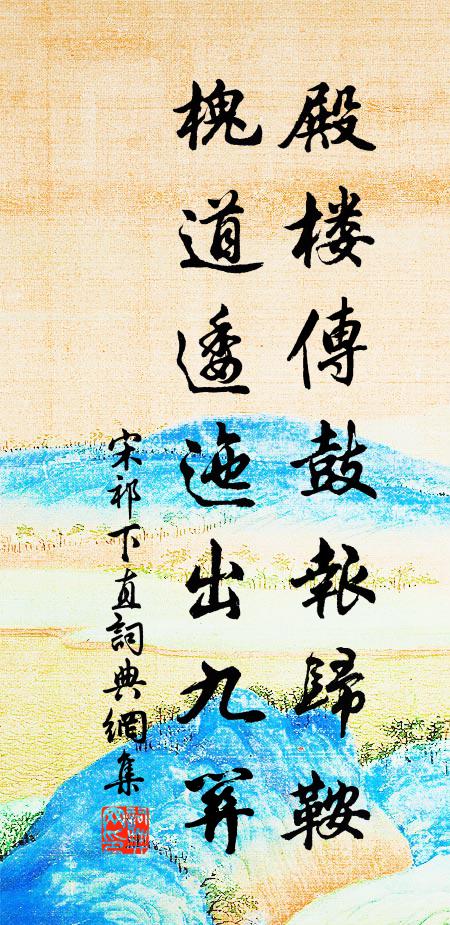 殿楼傳鼓報歸鞍
槐道逶迤出九關
宋祁下直詞典網集